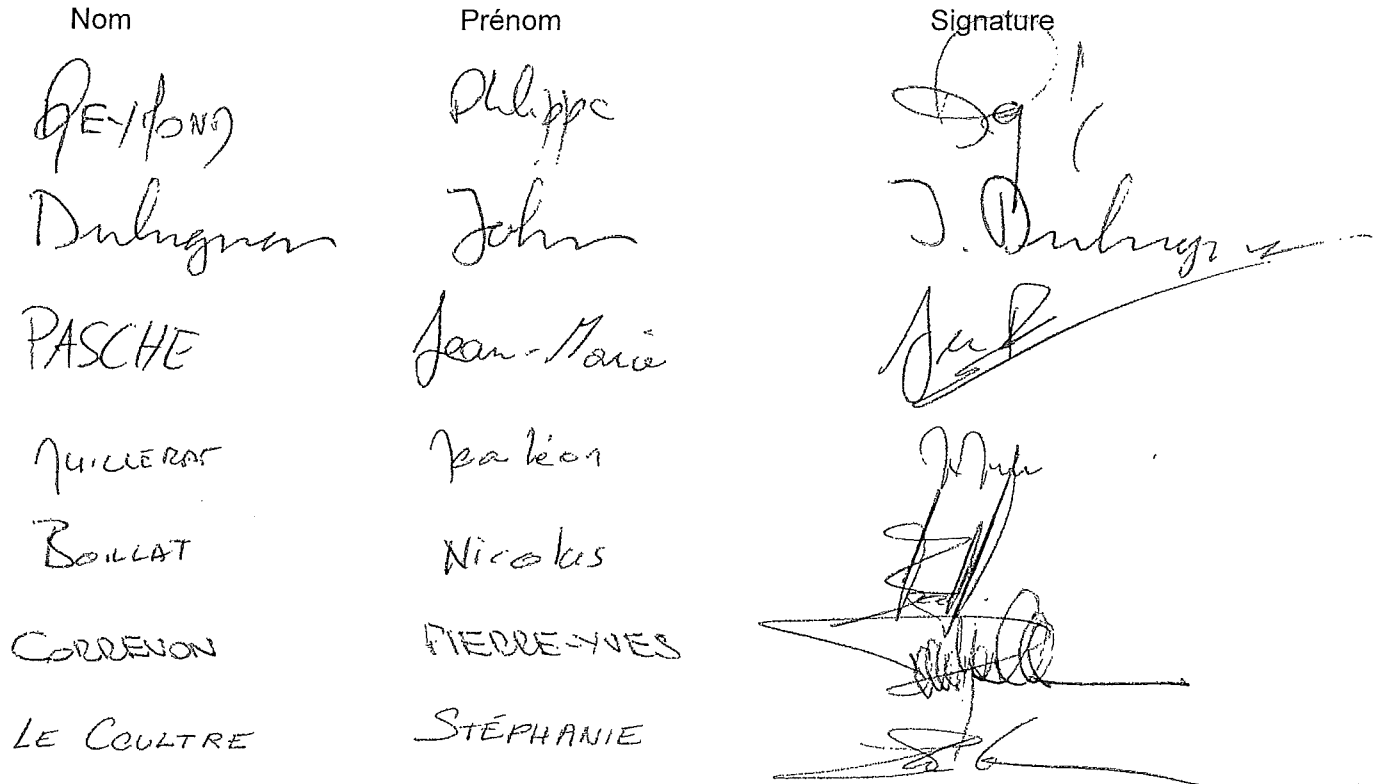 Nom Prénom Signature
REYMOND Philippe
Dubugnon John J. Dubugnon
PASCHE Jean-Marie
JUILLERAT Jean Léon
BOILLAT Nicolas
CORREVON PIERRE-YVES
LE COULTRE STÉPHANIE